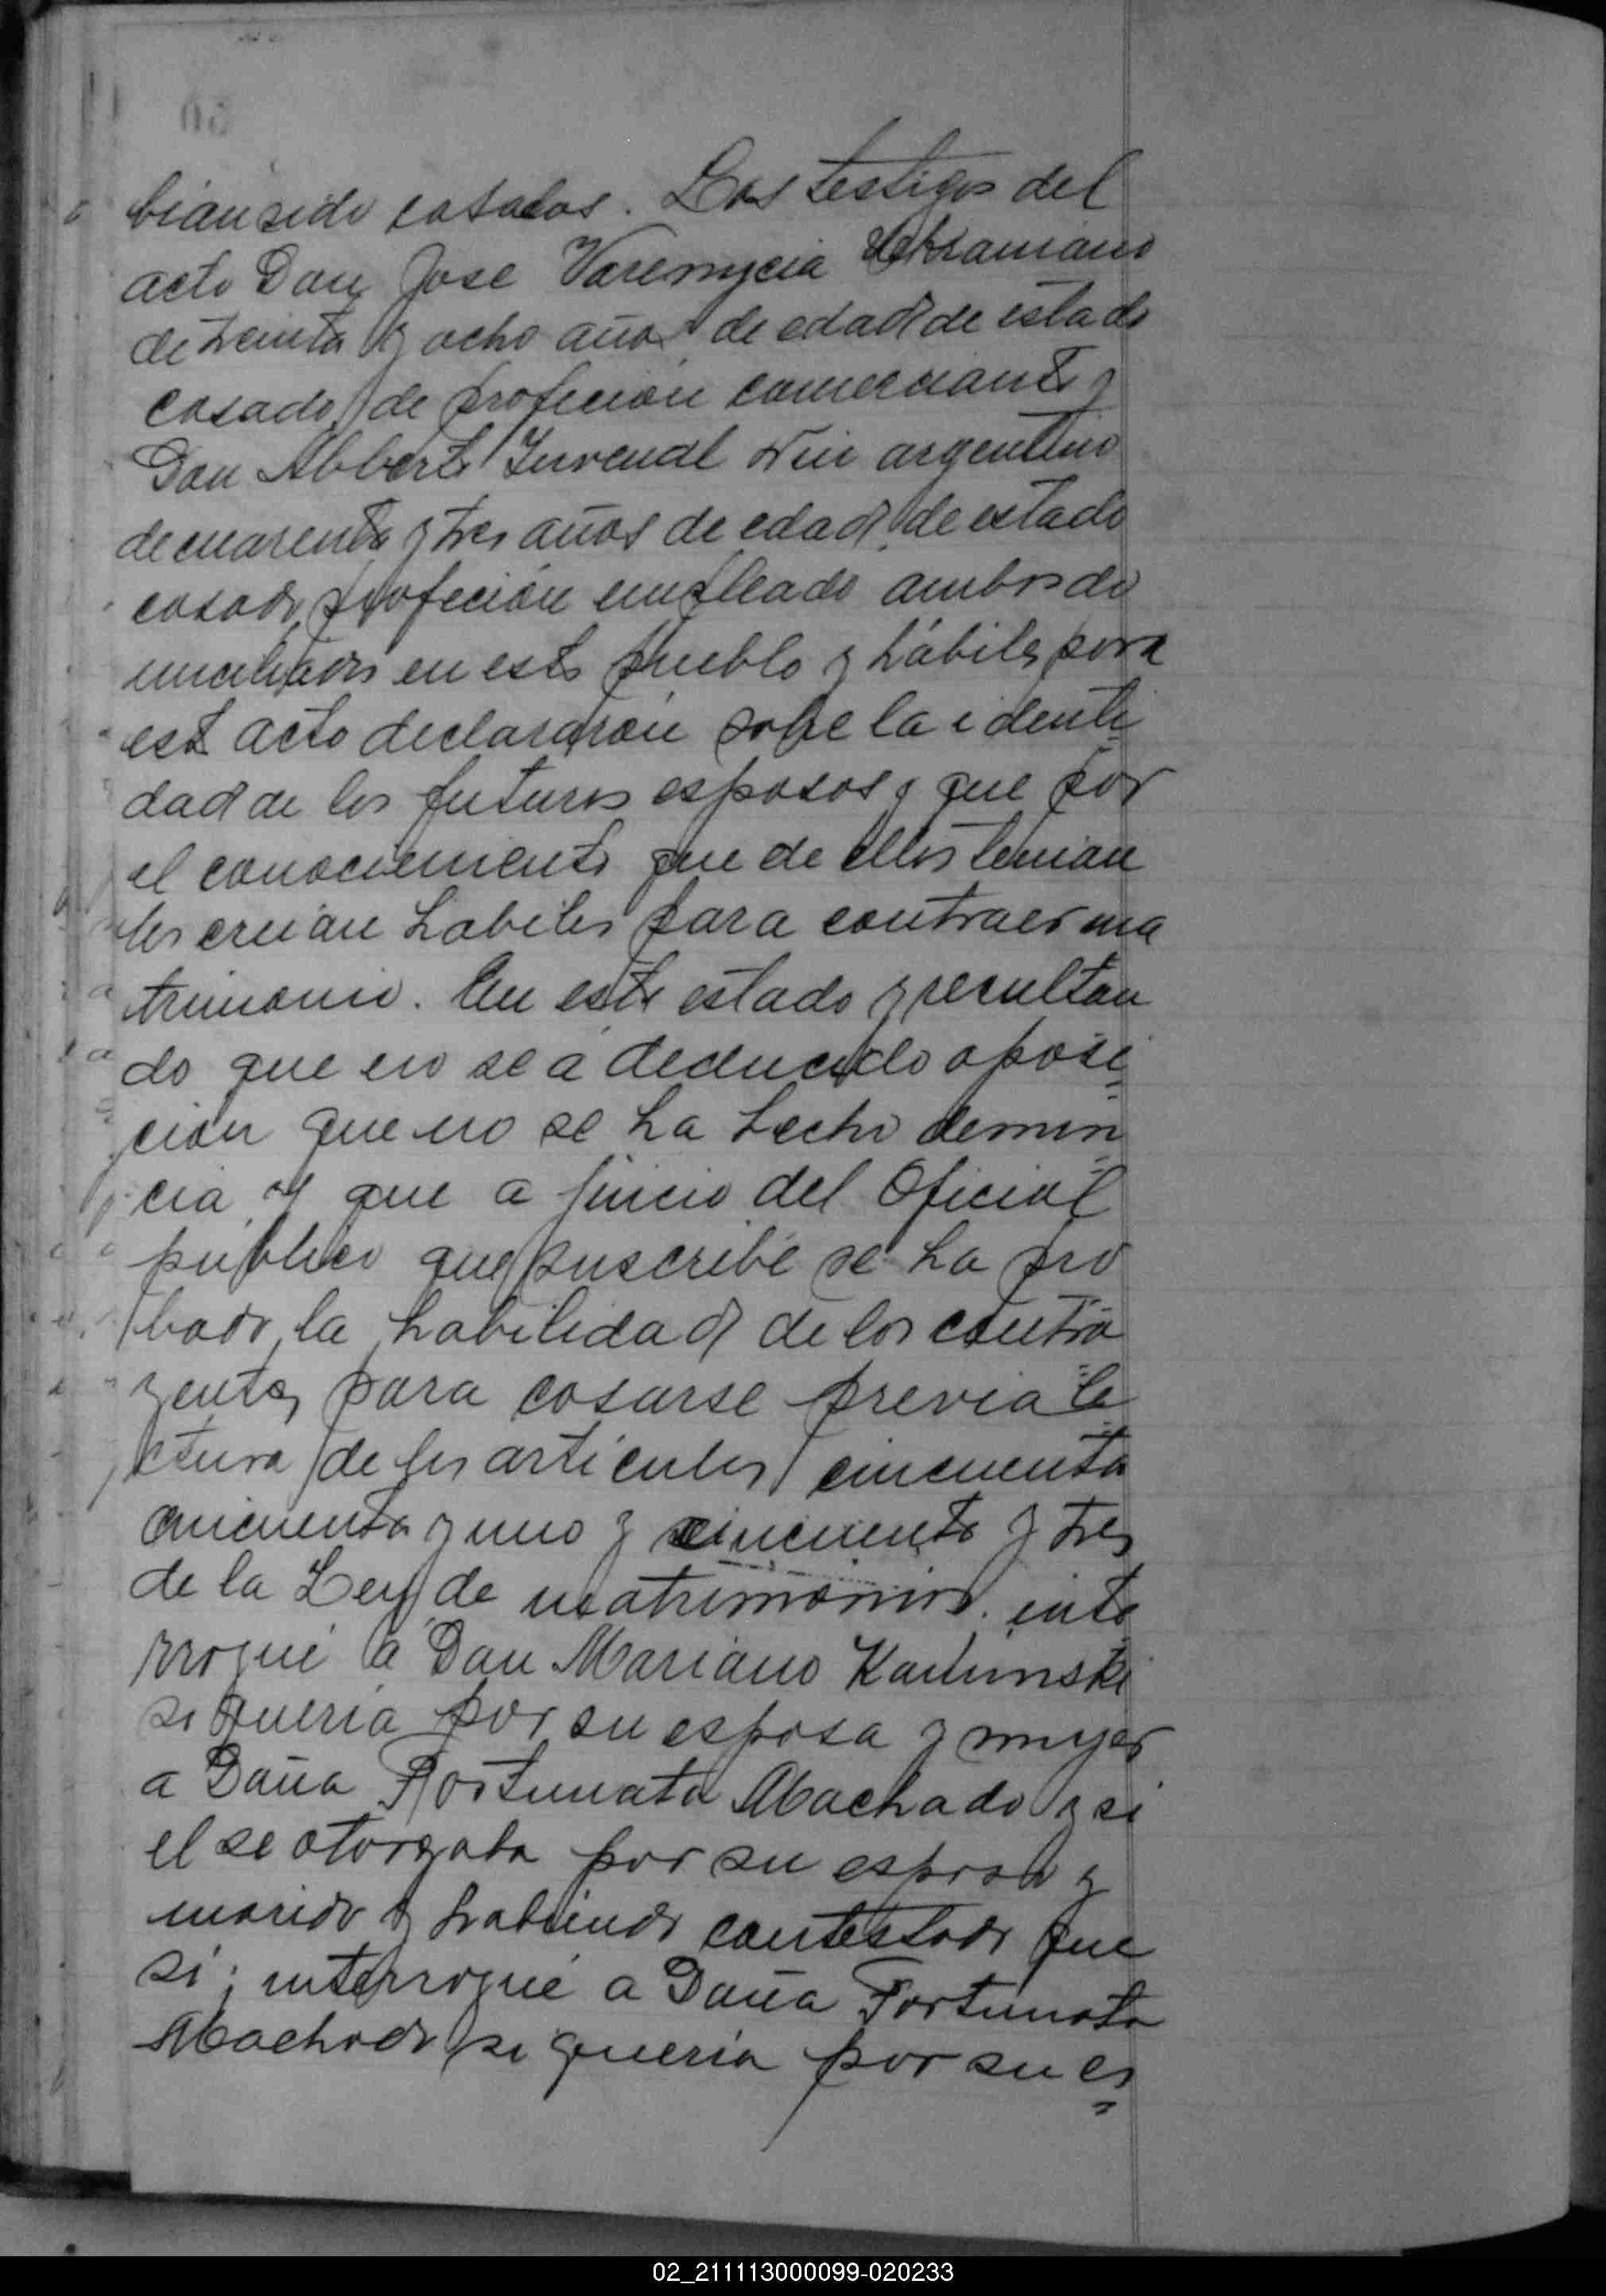 bian sido casados. Los testigos del
acto Don José Varemycia Ukraniano
de treinta y ocho años de edad de estado
casado, de profecion comerciante y
Don Alberto Juvenal Nin argentino
de cuarenta y tres años de edad, de estado
casado, profecion empleado ambos do
miciliados en este pueblo y hábiles para
este acto declararon sobre la identi
dad de los futuros esposos y que por
el conocimiento que de ellos tenian
los creian habiles para contraer ma
trimonio. En este estado y resultan
do que no se a deducido oposi
cion que no se ha hecho denun
cia y que a juicio del Oficial
público que suscribe se ha pro
bado la habilidad de los contra
yentes para casarse previa le
ctura de los articulos cincuenta
cincuenta y uno y cincuenta y tres
de la Ley de matrimonio. inte
rrogué a Don Mariano
si queria por su esposa y mujer
a Doña Fortunata Machado y si
el se otorgaba por su esposo y
marido y habiendo contestado que
si; interrogué a Doña Fortunata
Machado si queria por su es
02_211113000099-020233